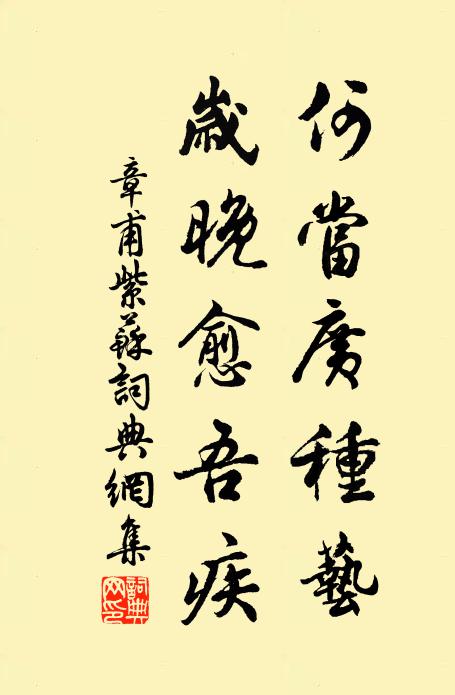 何當廣種藝
歲晚愈吾疾
章甫紫蘇詞典網集